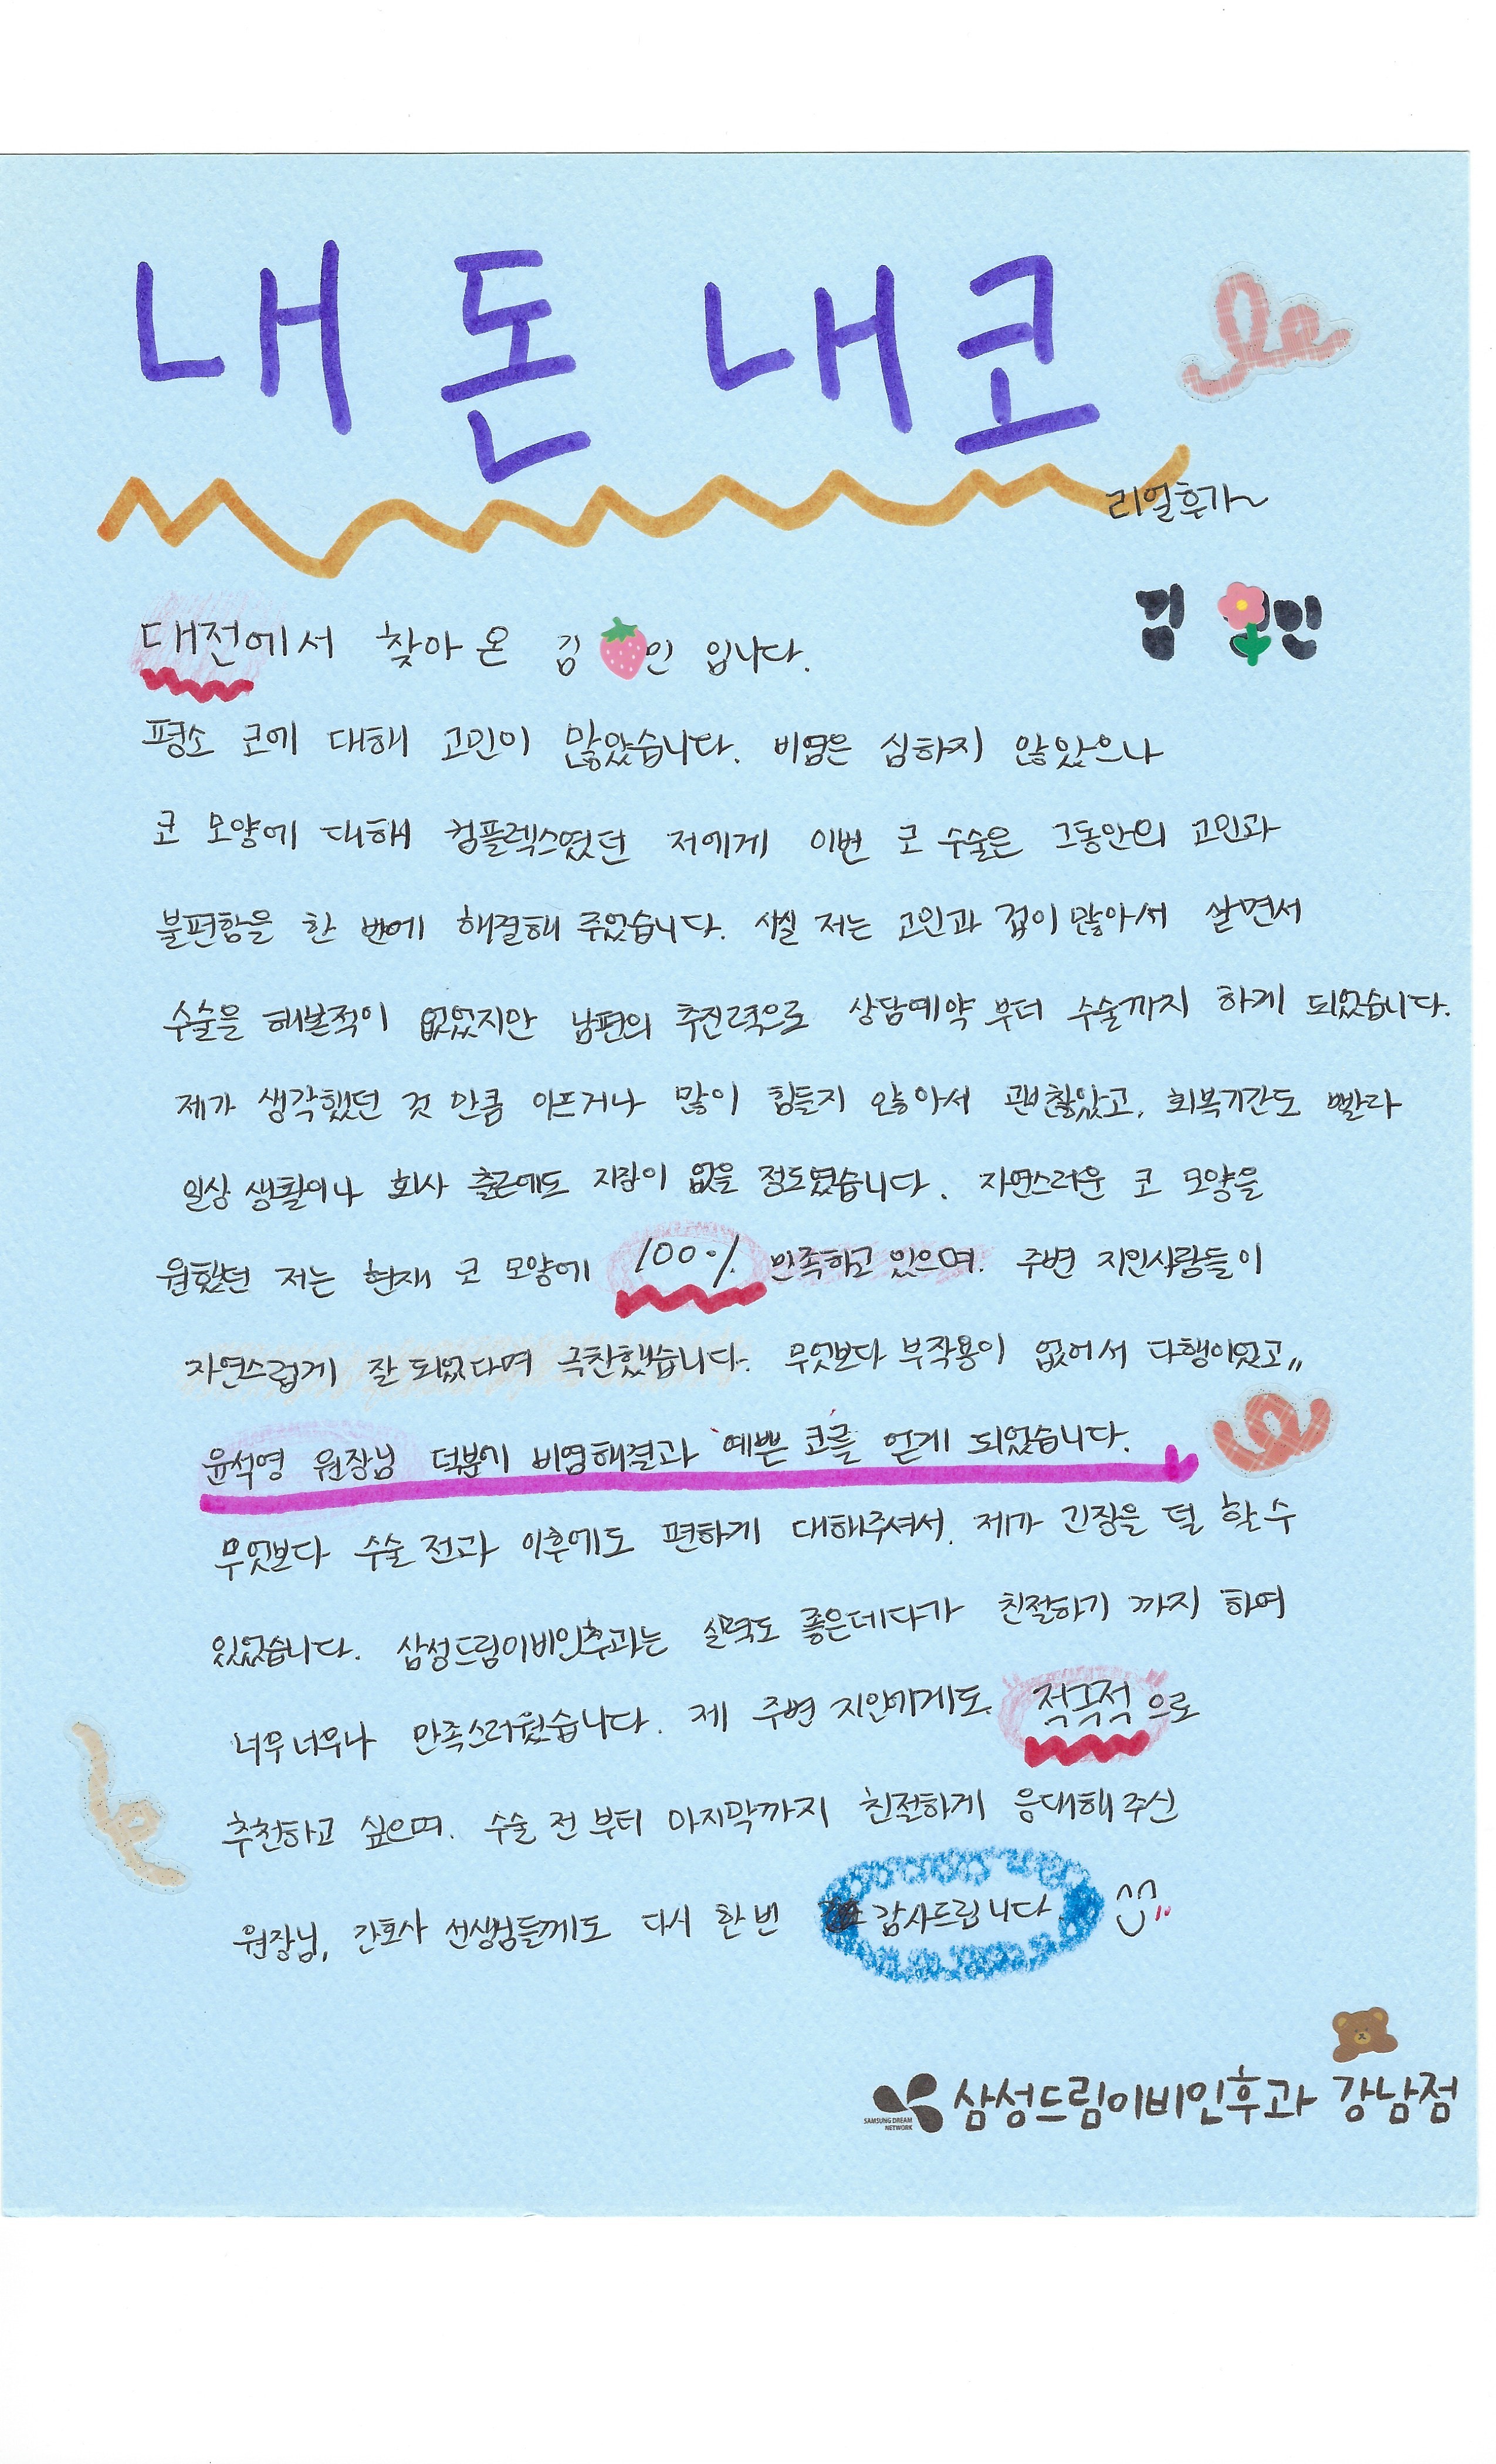 내 돈 내 코
리얼후기~
김 인
대전에서 찾아 온 김 인 입니다.
평소 코에 대해 고민이 많았습니다. 비염은 심하지 않았으나
코 모양에 대해 컴플렉스였던 저에게 이번 코 수술은 그동안의 고민과
불편함을 한 번에 해결해 주었습니다. 사실 저는 고민과 겁이 많아서 살면서
수술을 해본적이 없었지만 남편의 추진력으로 상담예약 부터 수술까지 하게 되었습니다.
제가 생각했던 것 만큼 아프거나 많이 힘들지 않아서 괜찮았고, 회복기간도 빨라
일상 생활이나 회사 출근에도 지장이 없을 정도였습니다. 자연스러운 코 모양을
원했던 저는 현재 코 모양에 100% 만족하고 있으며. 주변 지인사람들이
자연스럽게 잘 되었다며 극찬했습니다. 무엇보다 부작용이 없어서 다행이었고,,
윤석영 원장님 덕분에 비염해결과 '예쁜 코'를 얻게 되었습니다.
무엇보다 수술 전과 이후에도 편하게 대해주셔서. 제가 긴장을 덜 할 수
있었습니다. 삼성드림이비인후과는 실력도 좋은데다가 친절하기 까지 하여
너무너무나 만족스러웠습니다. 제 주변 지인에게도 적극적으로
추천하고 싶으며. 수술 전 부터 마지막까지 친절하게 응대해 주신
원장님, 간호사 선생님들께도 다시 한 번 감사드립니다
SAMSUNG DREAM NETWORK 삼성드림이비인후과 강남점